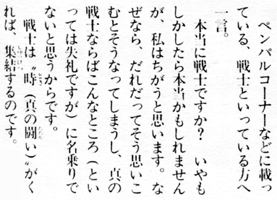 ペンパルコーナーなどに載っ
ている、戦士といっている方へ
一言。
本当に戦士ですか？　いやも
しかしたら本当かもしれません
が、私はちがうと思います。な
ぜなら、だれだってそう思いこ
むとそうなってしまうし、真の
戦士ならばこんなところ（とい
っては失礼ですが）に名乗りで
ないと思うからです。
戦士は〝時（真の闘い）〟がく
れば、集結するのです。